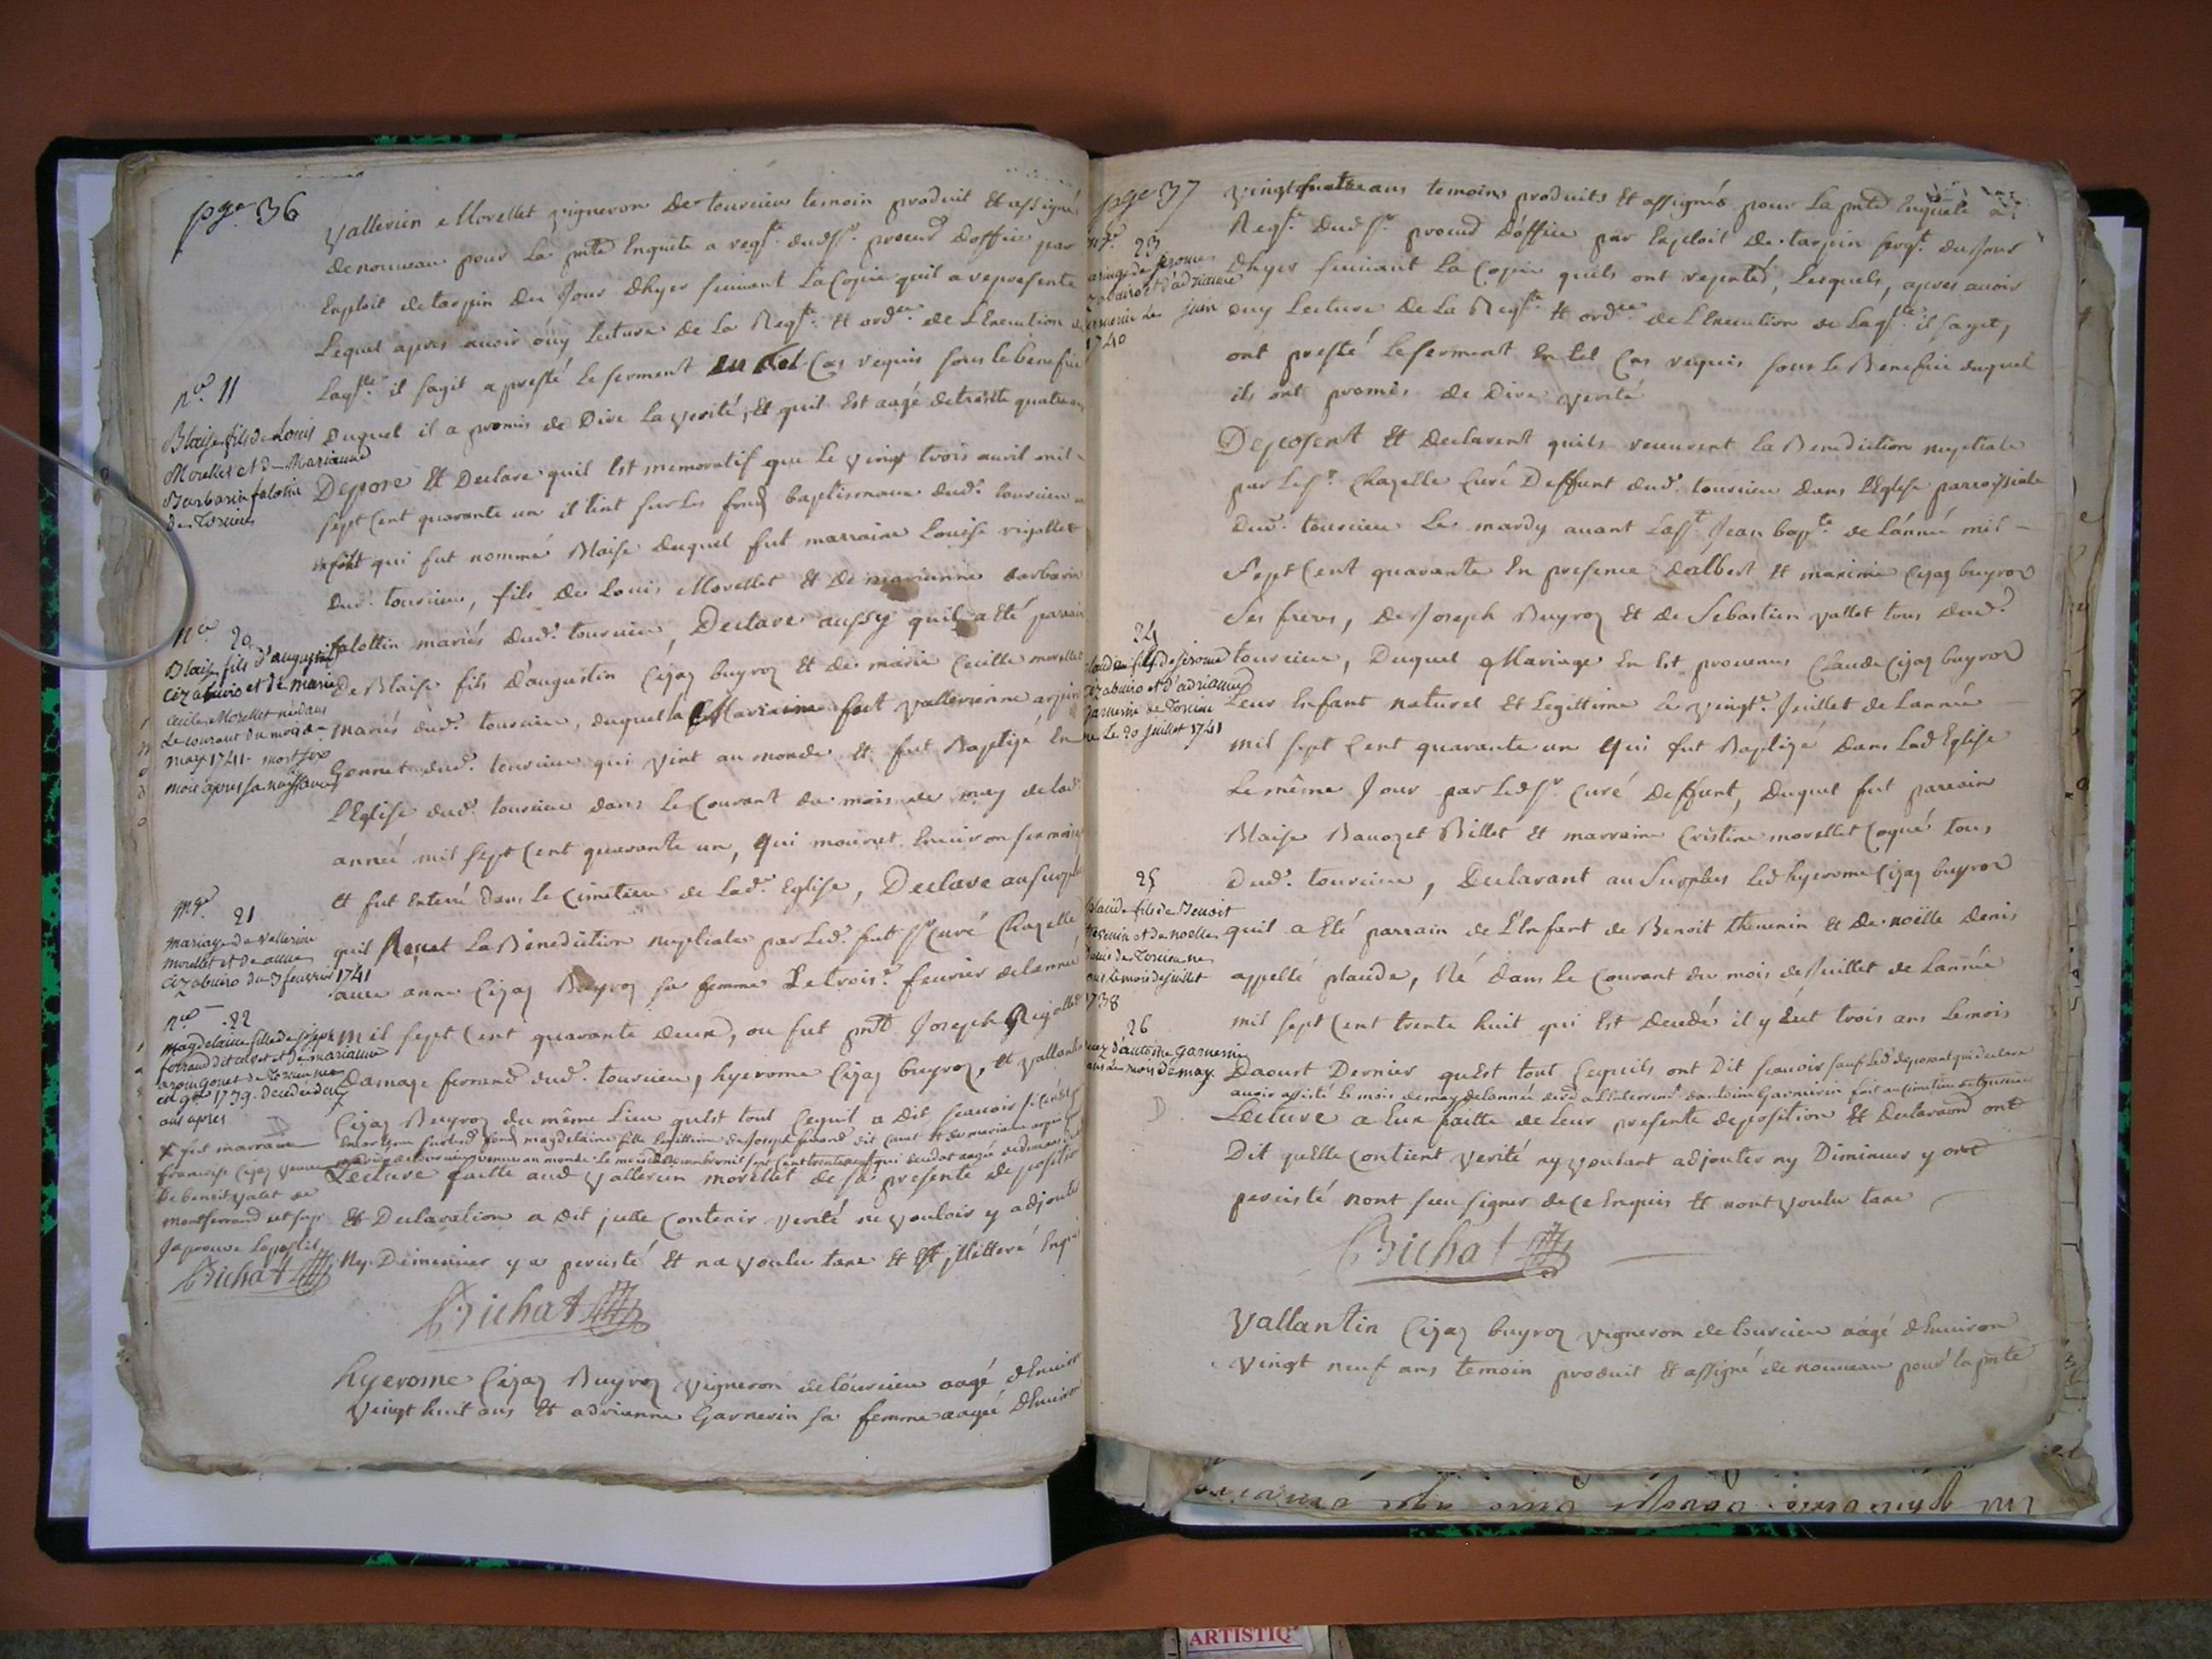 pge. 36
Vallerien Morellet vigneron de tourcieu temoin produit et assigné
de nouveau pour la pnte Enquete a reqte. dudsr. procur d'office par
Exploit de tarpin du Jour d'hyer suivant la Copie quil a representé
Lequel apres avoir ouy lecture de La Reqte. et ordce. de L'Execution
Laqlle. il sagit a presté le serment En tel Cas requis sous le benefice
duquel il a promis de Dire la verité, Et quil Est aagé de trente quatre ans
Depose Et Declare quil Est memoratif que le vingt trois avril mil
sept Cent quarante un il tint sur les fonds baptismaux dud. tourcieu
enfant qui fut nommé Blaise duquel fut marraine Louise rigollet
dud. tourcieu, fils de Louis Morellet et de marianne barbarin
falottin mariés dud. tourcieu, Declare aussy quil a Eté parrain
de Blaise fils d'augustin Cizaz buyroz et de marie Cecille morellet
mariés dud. tourcieu, duquel la Marraine fut vallerienne arpin
Gonnet dud. tourcieu qui vint au monde et fut Baptizé En
l'Eglise dud. tourcieu dans le Courant du mois de may de lad.
année mil sept Cent quarante un, qui mourut Environ six mois
et fut Enterré dans le Cimetiere de lad. Eglise, Declare au surplus
quil Recut La Benediction nuptiale par led. fut sr. Curé Chazelle
avec anne Cizaz Buyroz sa femme Le trois. fevrier de lannée
mil sept Cent quarante deux, ou fut pnt. Joseph Rigollet
Damaze ferrand dud. tourcieu, hyerome Cizaz buyroz, et vallantin
Cizaz Buyroz du même Lieu qu'est tout Cequil a Dit scavoir
sur lesd. fonds magdelaine fille legitime de Joseph ferrand dit Cavet et de mariane arpin
mariés de tourcieu venue au monde le mois de novembre mil sept Cent trente neuf qui deceda aagée de deux ans
Lecture faitte aud vallerien morellet de sa presente deposition
et Declaration a dit jcelle Contenir verité ne vouloir y adjouter
Ny Diminuer y a percisté et na voulu taxe et Est jllitteré Enquis
Bichat
hyerome Cizaz Buyroz vigneron de tourcieu aagé d'Environ
vingt huit ans Et adrienne Garnerin sa femme aagée d'Environ
no. 11
Blaise fils de Louis
Morellet et de Marianne
Barbarin falotin
de Torcieu
no. 20
Blaise fils d'augustin
cizabuiro et de marie
cecile Morellet né dans
le courant du mois de
may 1741 - mort six
mois apres sa naissance
mge. 21
mariage de vallerien
morellet et de anne
cizabuiro du 3 fevrier 1741
no. 22
magdelaine fille de joseph
ferrand dit cavet et de marianne
arpin gonet de Torcieu née
en 9bre 1739. decedée deux
ans apres
x fut marraine
francoise Cizaz veuve
de benoit valet de
montferrand
Japrouve Lapostil
Bichat
pge 37
vingt quatre ans temoins produits Et assignés pour La pnte Enquete a
Reqte. dudsr. procur d'office par Exploit de tarpin sergt. du jour
d'hyer suivant La Copie quels ont repnté, Lesquels, apres avoir
ouy Lecture de La Reqte. Et ordce. de L'Execution de Laqlle. il sagit,
ont presté le serment En tel Cas requis sous le Benefice duquel
ils ont promis de Dire verité
Deposent Et Declarent quils recurent la Benediction nuptiale
par Lesr. Chazelle Curé Deffunt dud. tourcieu dans l'Eglise parroissiale
dud. tourcieu Le mardy avant La st. Jean bapte. de L'année mil
sept Cent quarante En presence d'albert Et maxime Cizaz buyroz
ses freres, de Joseph Buyroz Et de Sebastien vallet tous dud.
tourcieu, Duquel Mariage En Est provenus Claude Cizaz buyroz
Leur Enfant naturel Et Legittime le vingte. Juillet de Lannée
mil sept Cent quarante un qui fut Baptizé Dans Lad Eglise
Le même Jour par Ledsr. Curé deffunt, Duquel fut parrain
Blaise Bauozet Billet Et marraine Cristine morellet Coqué tous
dud. tourcieu, Declarant au Surplus Led hyerome Cizaz buyroz
quil a Eté parrain de L'Enfant de Benoit thevenin Et de noëlle denis
appellé placide, Né dans le Courant du mois de Juillet de Lannée
mil sept Cent trente huit qui Est decedé il y Eut trois ans le mois
Daoust Dernier qu'Est tout Cequils ont Dit scavoir sauf Led deposant qui declare
avoir assisté le mois de may de lannée derre a L'enterremt. dantoine Garnerin fait au Cimetiere de tourcieu
Lecture a Eux faitte de Leur presente deposition Et Declaraon ont
Dit qu'Elle Contient verité ny voulant adjouter ny Diminuer y ont
percisté nont sceu signer de ce Enquis Et nont voulu taxe
Bichat
Vallantin Cizaz buyroz vigneron de tourcieu aagé d'Environ
vingt neuf ans temoin produit Et assigné de nouveau pour la pnte
mge. 23
ariage de jerome
zabuiro et d'adrianne
arnerin de juin
1740
24
laude fils de jerome
cizabuiro et d'adrianne
garnerin de Torcieu
né Le 20 juillet 1741
25
placide fils de Benoit
thevenin et de noelle
denis de Torcieu né
dans le mois de juillet
1738
26
decez d'antoine garnerin
dans le mois de may
ARTISTIQ